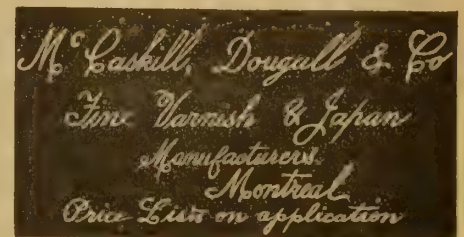 McCaskill, Dougall & Co
Fine Varnish & Japan
Manufacturers
Montreal
Price List on application